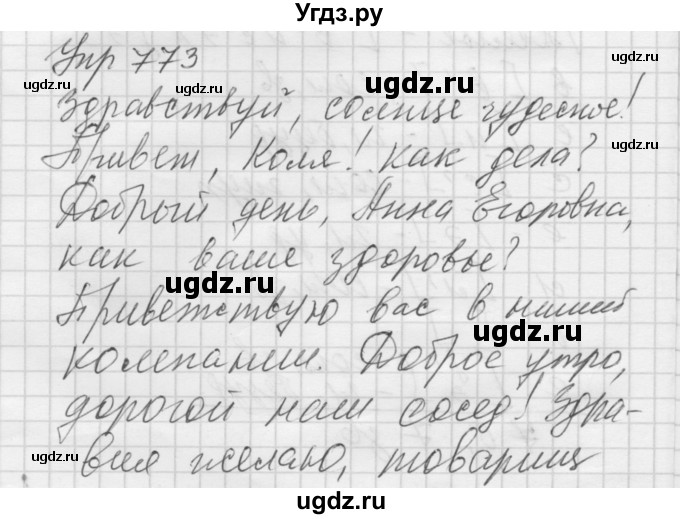 Угдз.ру
Упр 773
Здравствуй, солнце чудесное!
Привет, Коля! Как дела?
Добрый день, Анна Егоровна,
как ваше здоровье?
Приветствую вас в нашей
компании. Доброе утро,
дорогой наш сосед! Здра-
вия желаю, товарищ
ugdz.ru
ugdz.ru
ugdz.ru
ugdz.ru
ugdz.ru
ugdz.ru
ugdz.ru
ugdz.ru
ugdz.ru
ugdz.ru
ugdz.ru